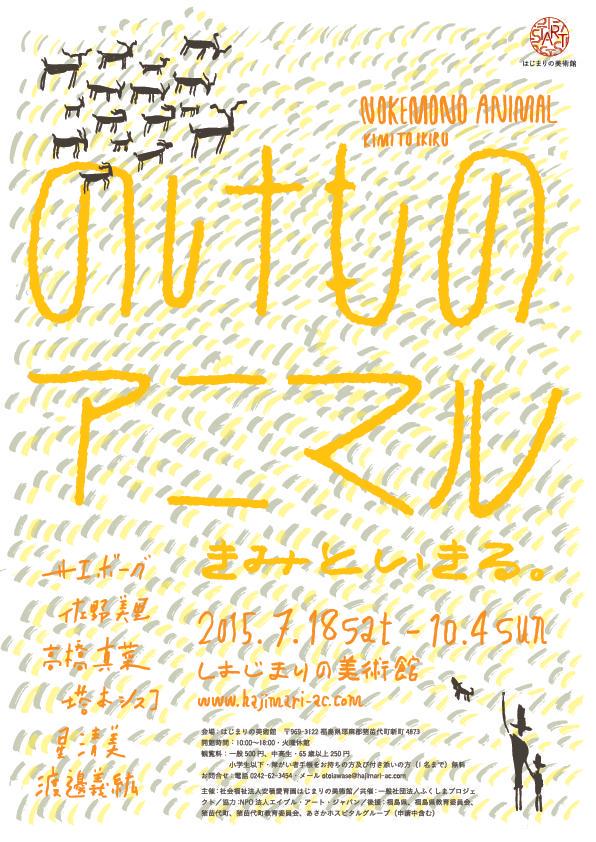 START
はじまりの美術館
NOKEMONO ANIMAL
KIMI TO IKIRU
のけもの
アニマル
きみといきる。
サエボーグ
佐野美里
高橋真菜
塔本シスコ
星清美
渡邊義紘
2015.7.18sat-10.4sun
はじまりの美術館
www.hajimari-ac.com
会場：はじまりの美術館　〒969-3122 福島県耶麻郡猪苗代町新町4873
開館時間：10:00〜18:00・火曜休館
観覧料：一般500円、中高生・65歳以上250円
小学生以下・障がい者手帳をお持ちの方及び付き添いの方（1名まで）無料
お問合せ：電話 0242-62-3454・メール otoiawase@hajimari-ac.com
主催：社会福祉法人安積愛育園はじまりの美術館／共催：一般社団法人ふくしまプロジェ
クト／協力：NPO法人エイブル・アート・ジャパン／後援：福島県、福島県教育委員会、
猪苗代町、猪苗代町教育委員会、あさかホスピタルグループ（申請中含む）